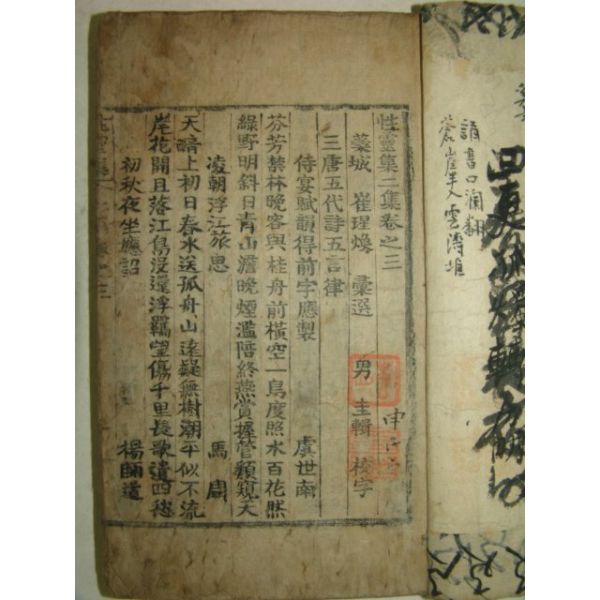 誦書口瀾翻
蒼崖半入雲濤堆
性靈集二集卷之三
藁城 崔瑆煥 彙選 男 圭輯 校字
三唐五代詩五言律
侍宴賦韻得前字應製 虞世南
芬芳禁林晚容與桂舟前橫空一鳥度照水百花然
綠野明斜日青山澹晚煙濫陪終燕賞握管類窺天
凌朝浮江旅思 馬周
天晴上初日春水送孤舟山遠疑無樹潮平似不流
岸花開且落江鳥沒還浮羈望傷千里長歌遣四愁
初秋夜坐應詔 楊師道